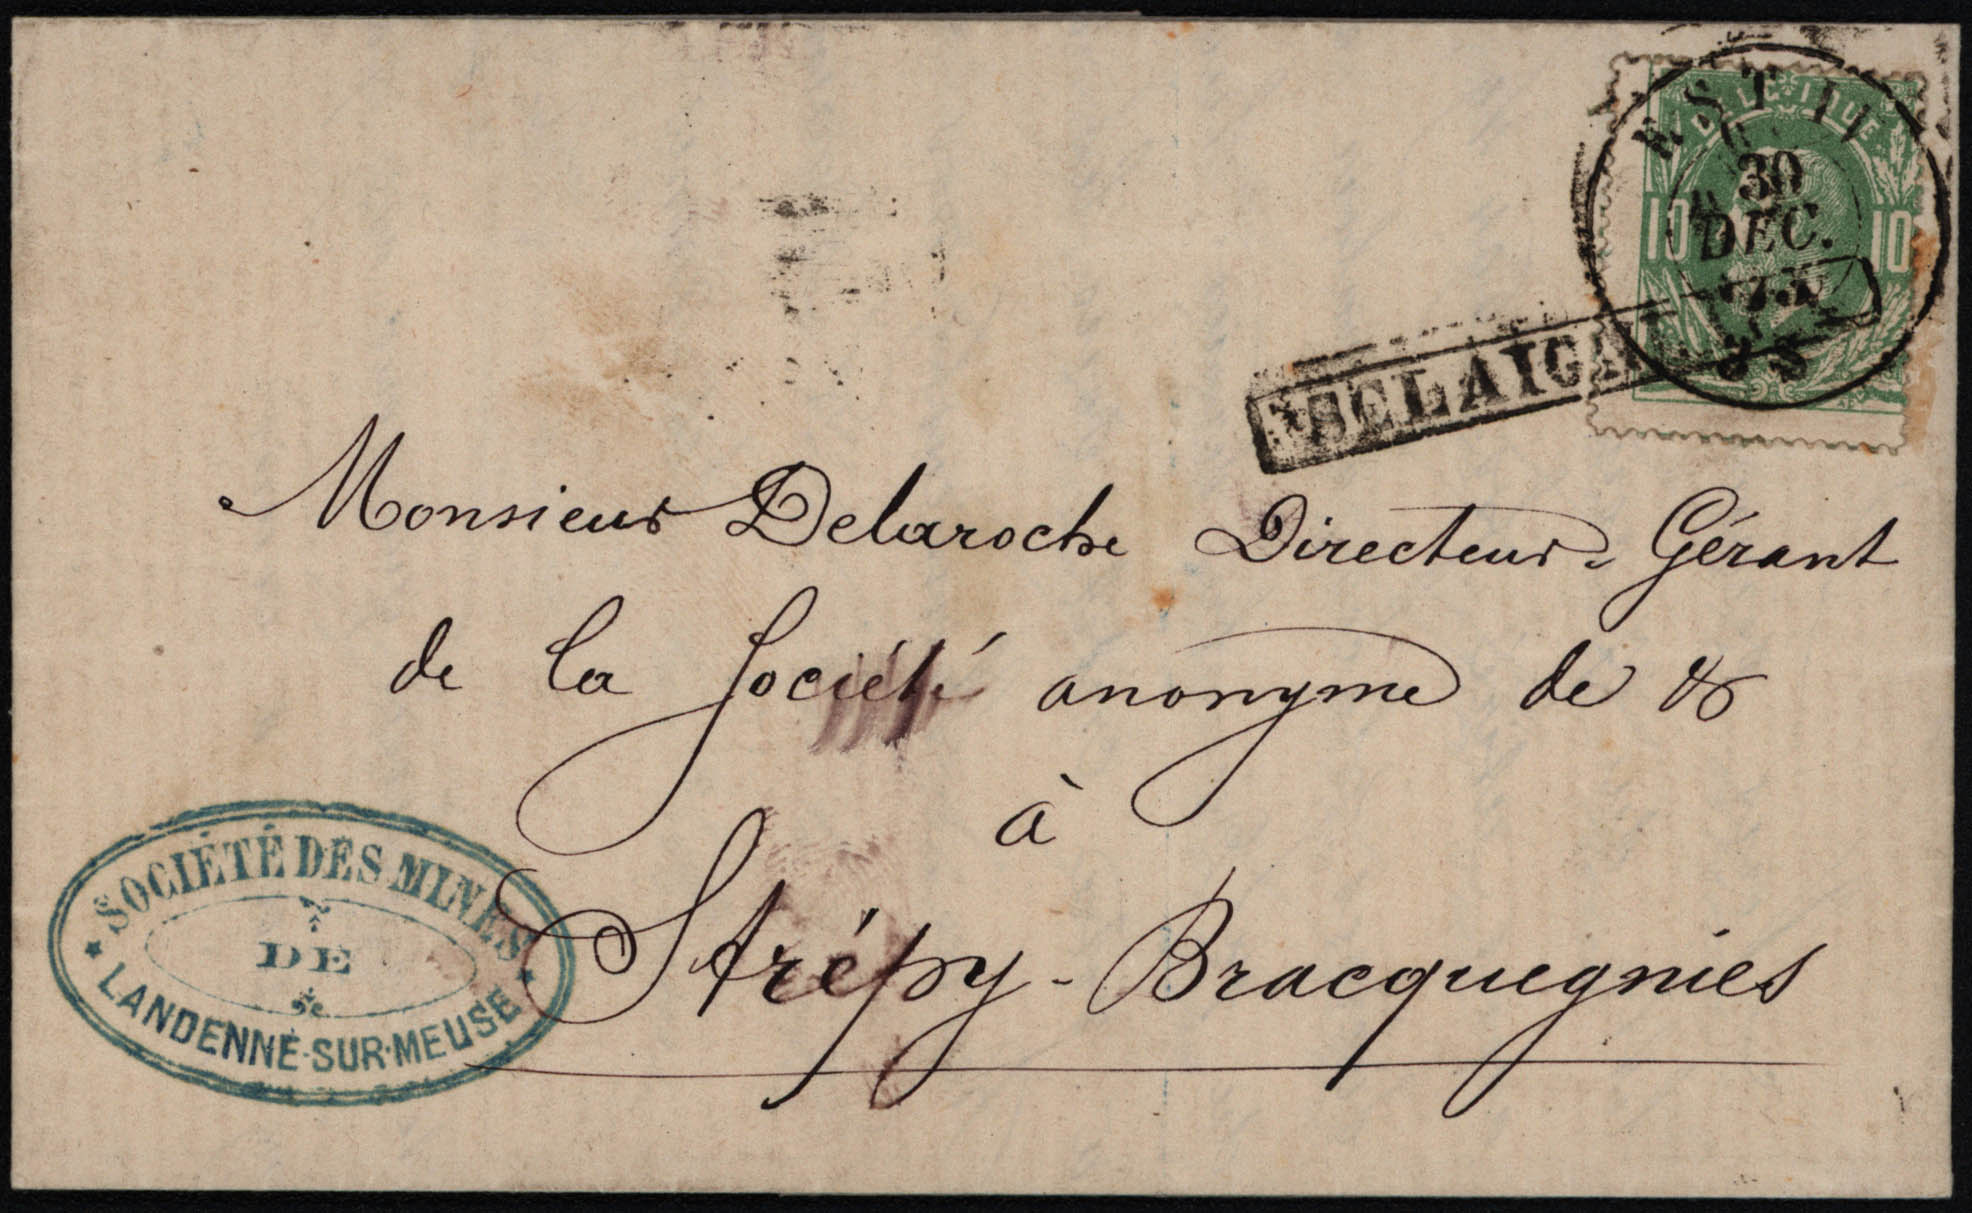 BELGIQUE
10 10
EST II
30
DEC.
SELAIGN
Monsieur Delaroche Directeur-Gérant
de la Société anonyme de &
à
Strépy-Bracquegnies
SOCIÉTÉ DES MINES
DE
LANDENNE-SUR-MEUSE